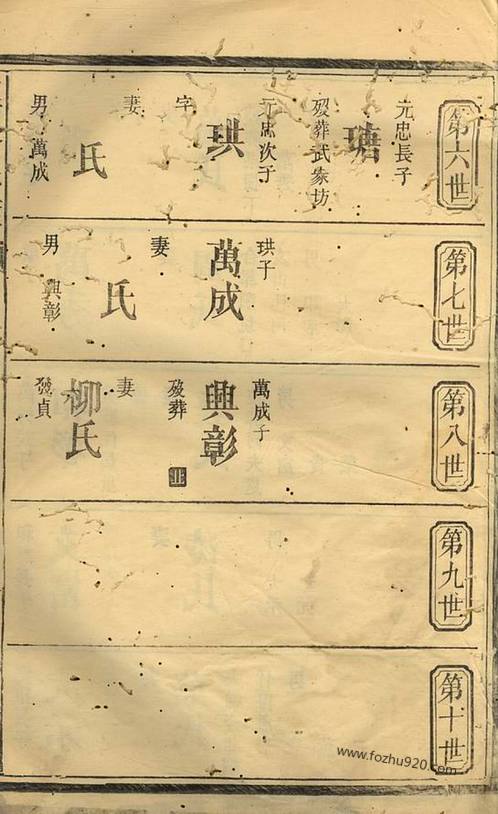 第十六世
元忠長子
瑭
歿葬武家坊
元忠次子
珙
字
妻
氏
男 萬成
第七世
珙子
萬成
妻
氏
男 興彰
第八世
萬成子
興彰
歿葬 止
妻
柳氏
發貞
第九世
第十世
www.fozhu920.com